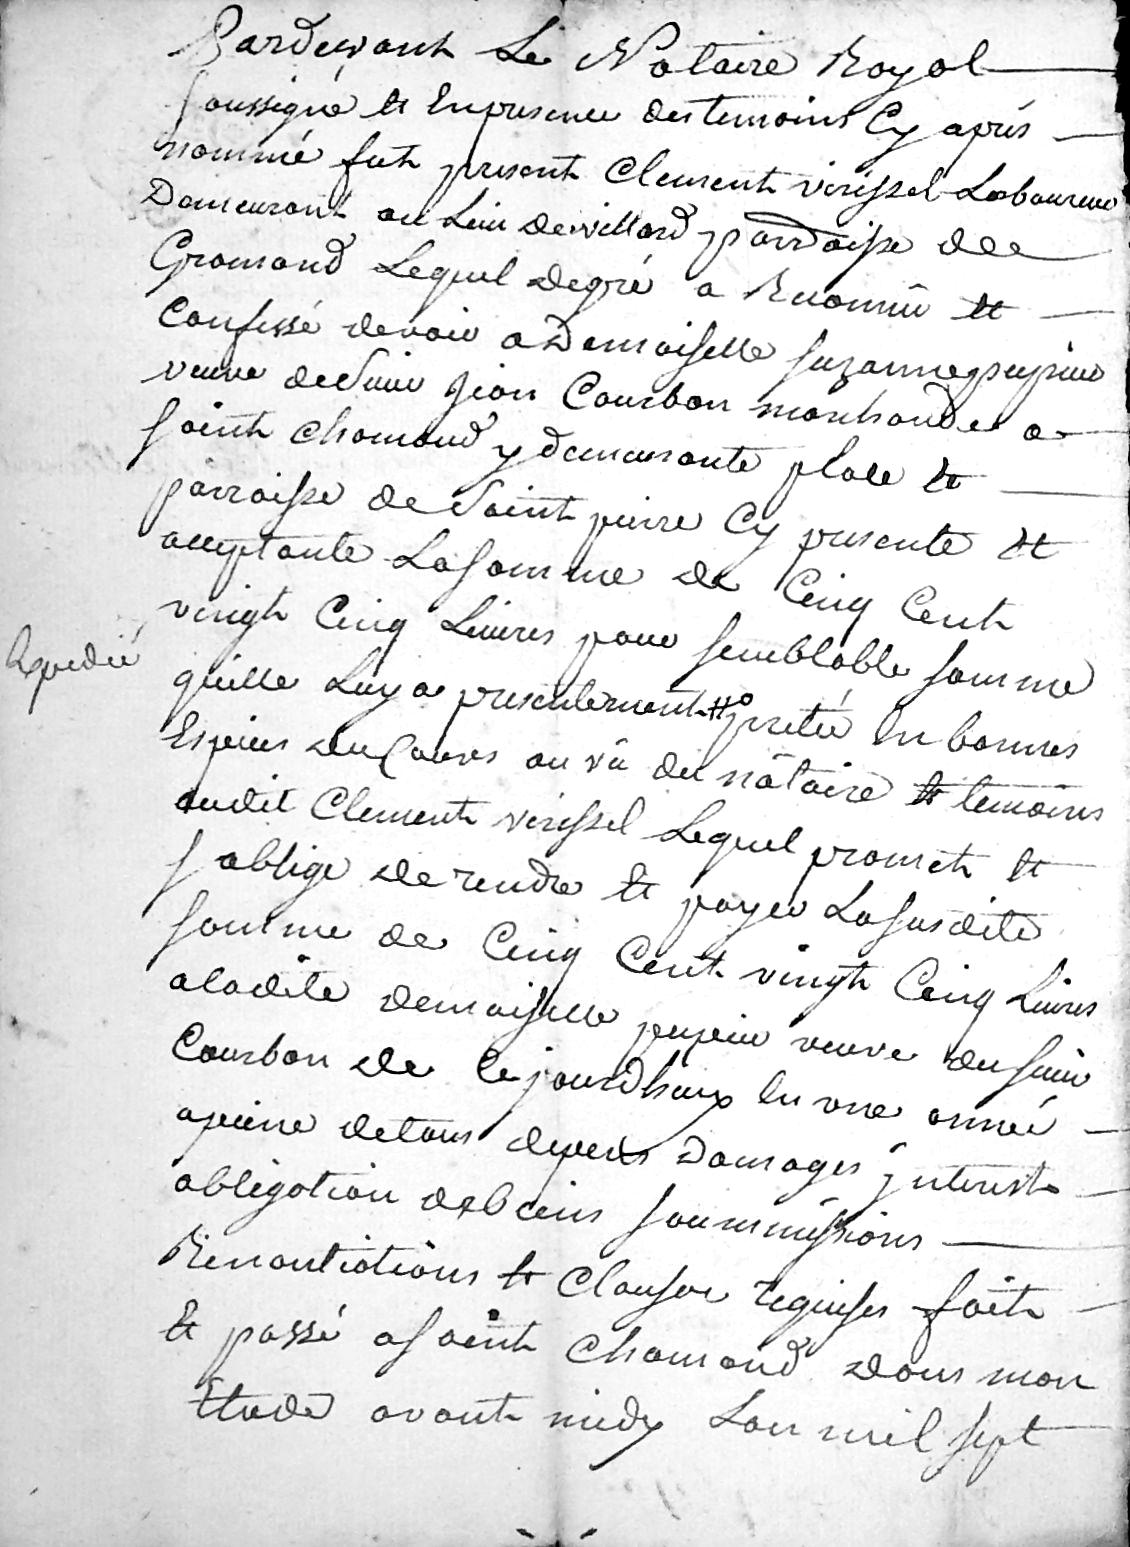 Pardevant Le Notaire Royal
soussigné et En presence des temoins Cy aprés
nommé fut present Clement virissel Laboureur
Demeurant au Lieu de villard parroisse de
Gramond Lequel de gré a Reconnu et
Confessé devoir a Demoiselle suzanne peyrieu
veuve de Sieur Jean Courbon marchande a
saint chamond y demeurante place et
parroisse de Saint pierre Cy presente et
acceptante La somme de Cinq Cent
vingt Cinq Livres pour semblable somme
Expedié
quelle Luy a presentement preté En bonnes
Especes du Cours au vû du nôtaire et temoins
audit Clement virissel Lequel promet et
s'oblige de rendre et payer La susdite
somme de Cinq Cent vingt Cinq Livres
a ladite demoiselle peyrieu veuve du sieur
Courbon de Ce jourdhuy En une année
a peine de tous depens Damages jnterest
obligation de biens soummissions
Renontiations et Clauses requises fait
Et passé a saint chamond dans mon
Etude avant midy Lan mil sept